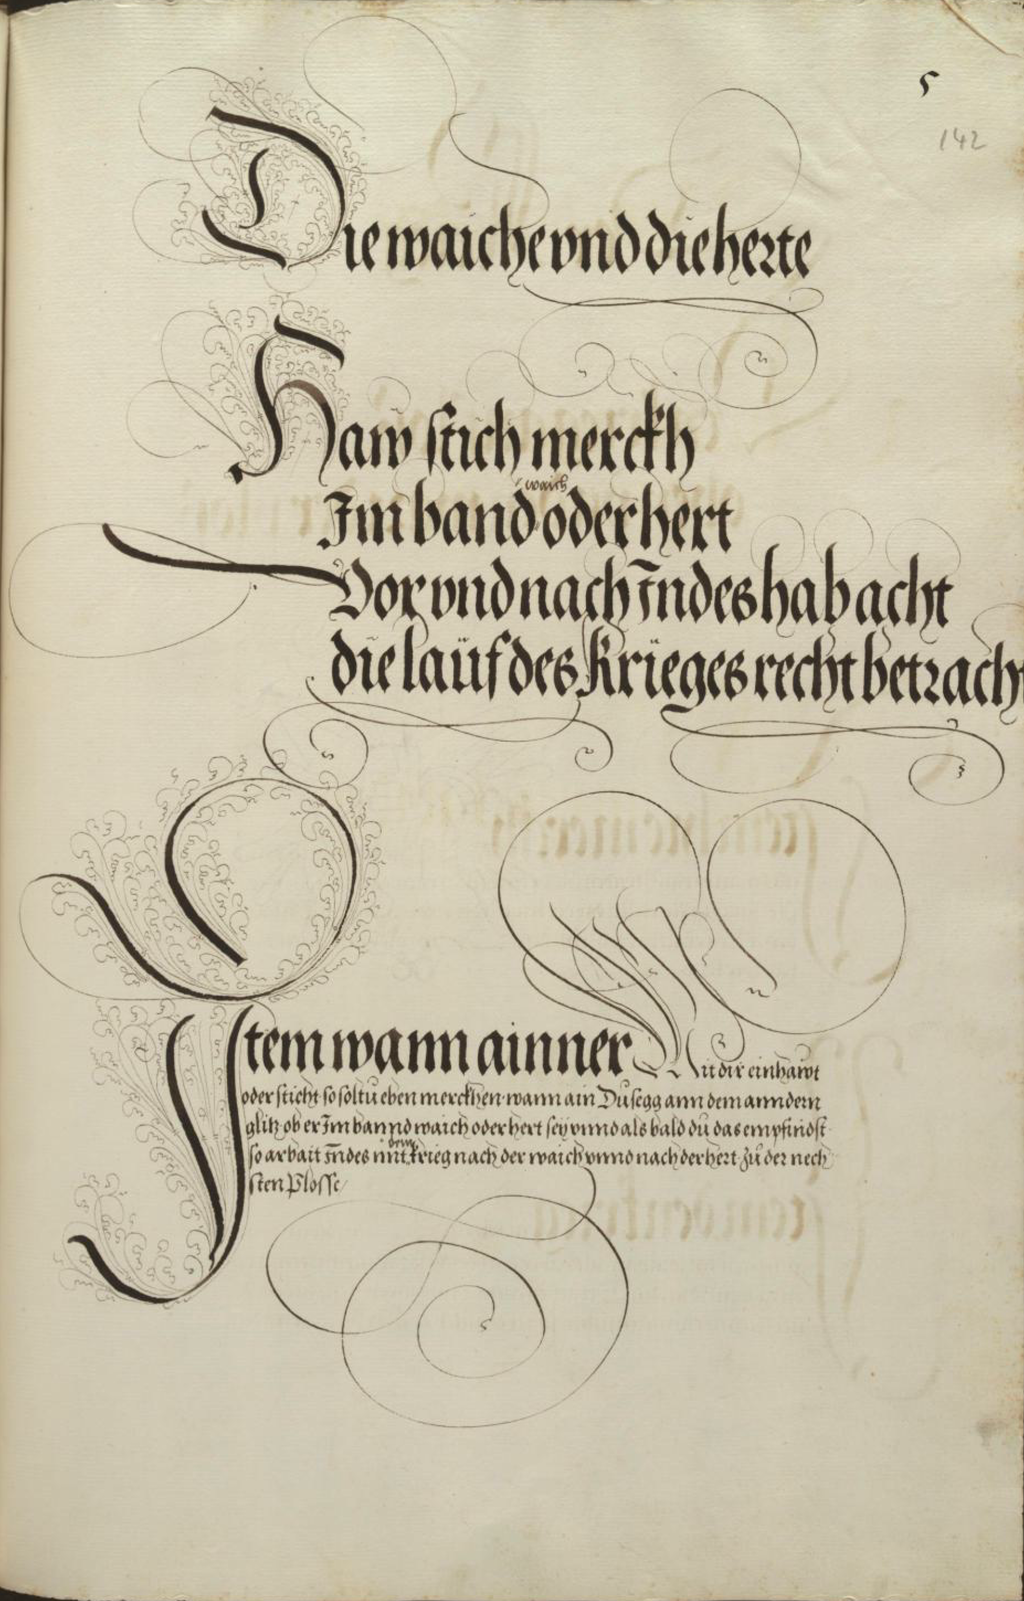 5
142
Die waiche vnnd die herte
Haw stich merckh
waich
Im band oder hert
Vor vnnd nach Inndes hab acht
die lauf des Krieges recht betracht
Item wann ainner Mit dir einhawt
oder sticht so soltu eben merckhen wann ain Dusegg ann dem anndern
glitz ob er Im bannd waich oder hert sey vnnd als bald du das empfindst
dem
so arbait Inndes mit krieg nach der waich vnnd nach der hert zu der nech
sten Plosse